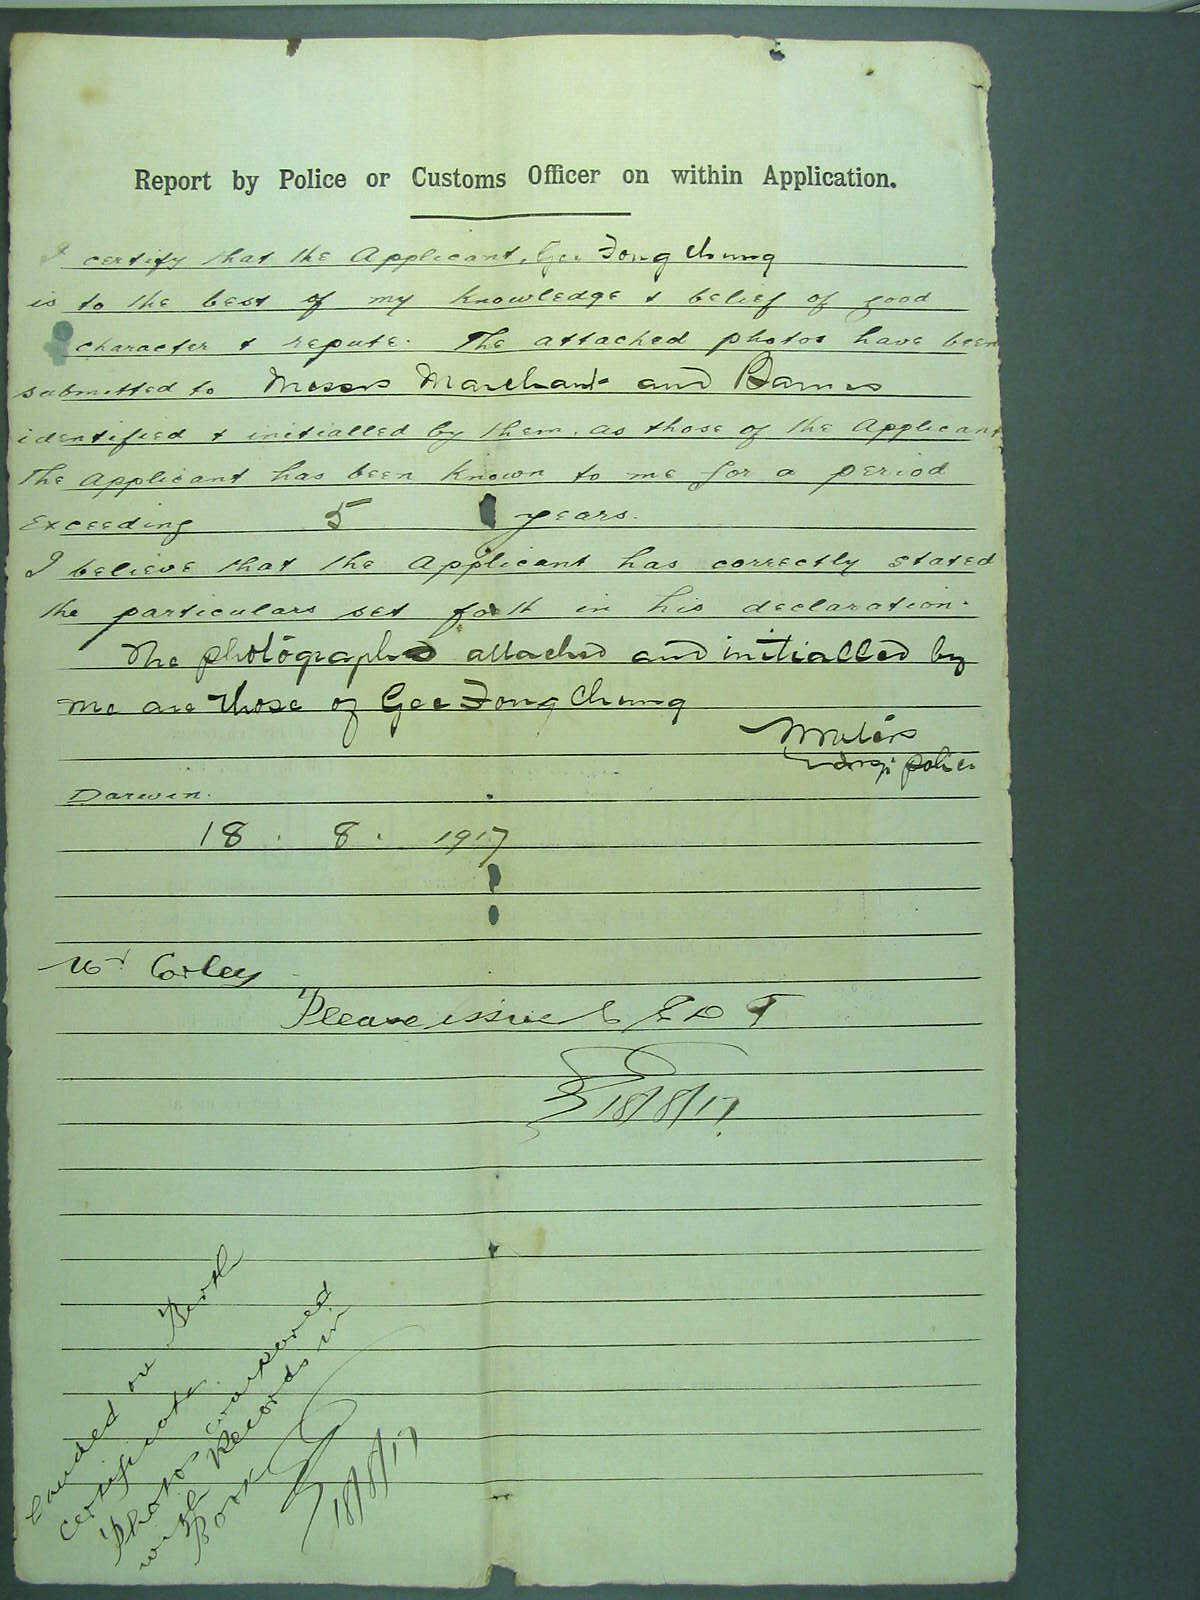 Report by Police or Customs Officer on within Application.
I certify that the Applicant, Gee Fong Chung
is to the best of my knowledge & belief of good
character & repute. The attached photos have been
submitted to Messrs Marchant and Barnes
identified & initialled by them, as those of the Applicant
The Applicant has been known to me for a period
Exceeding 5 years.
I believe that the Applicant has correctly stated
the particulars set forth in his declaration.
The photographs attached and initialled by
me are those of Gee Fong Chung
police
Darwin.
18. 8. 1917
Mr Corley
Please issue E D T
18/8/17
Landed on Birth
certificate.
Photos compared
with Records in
Book
18/8/17